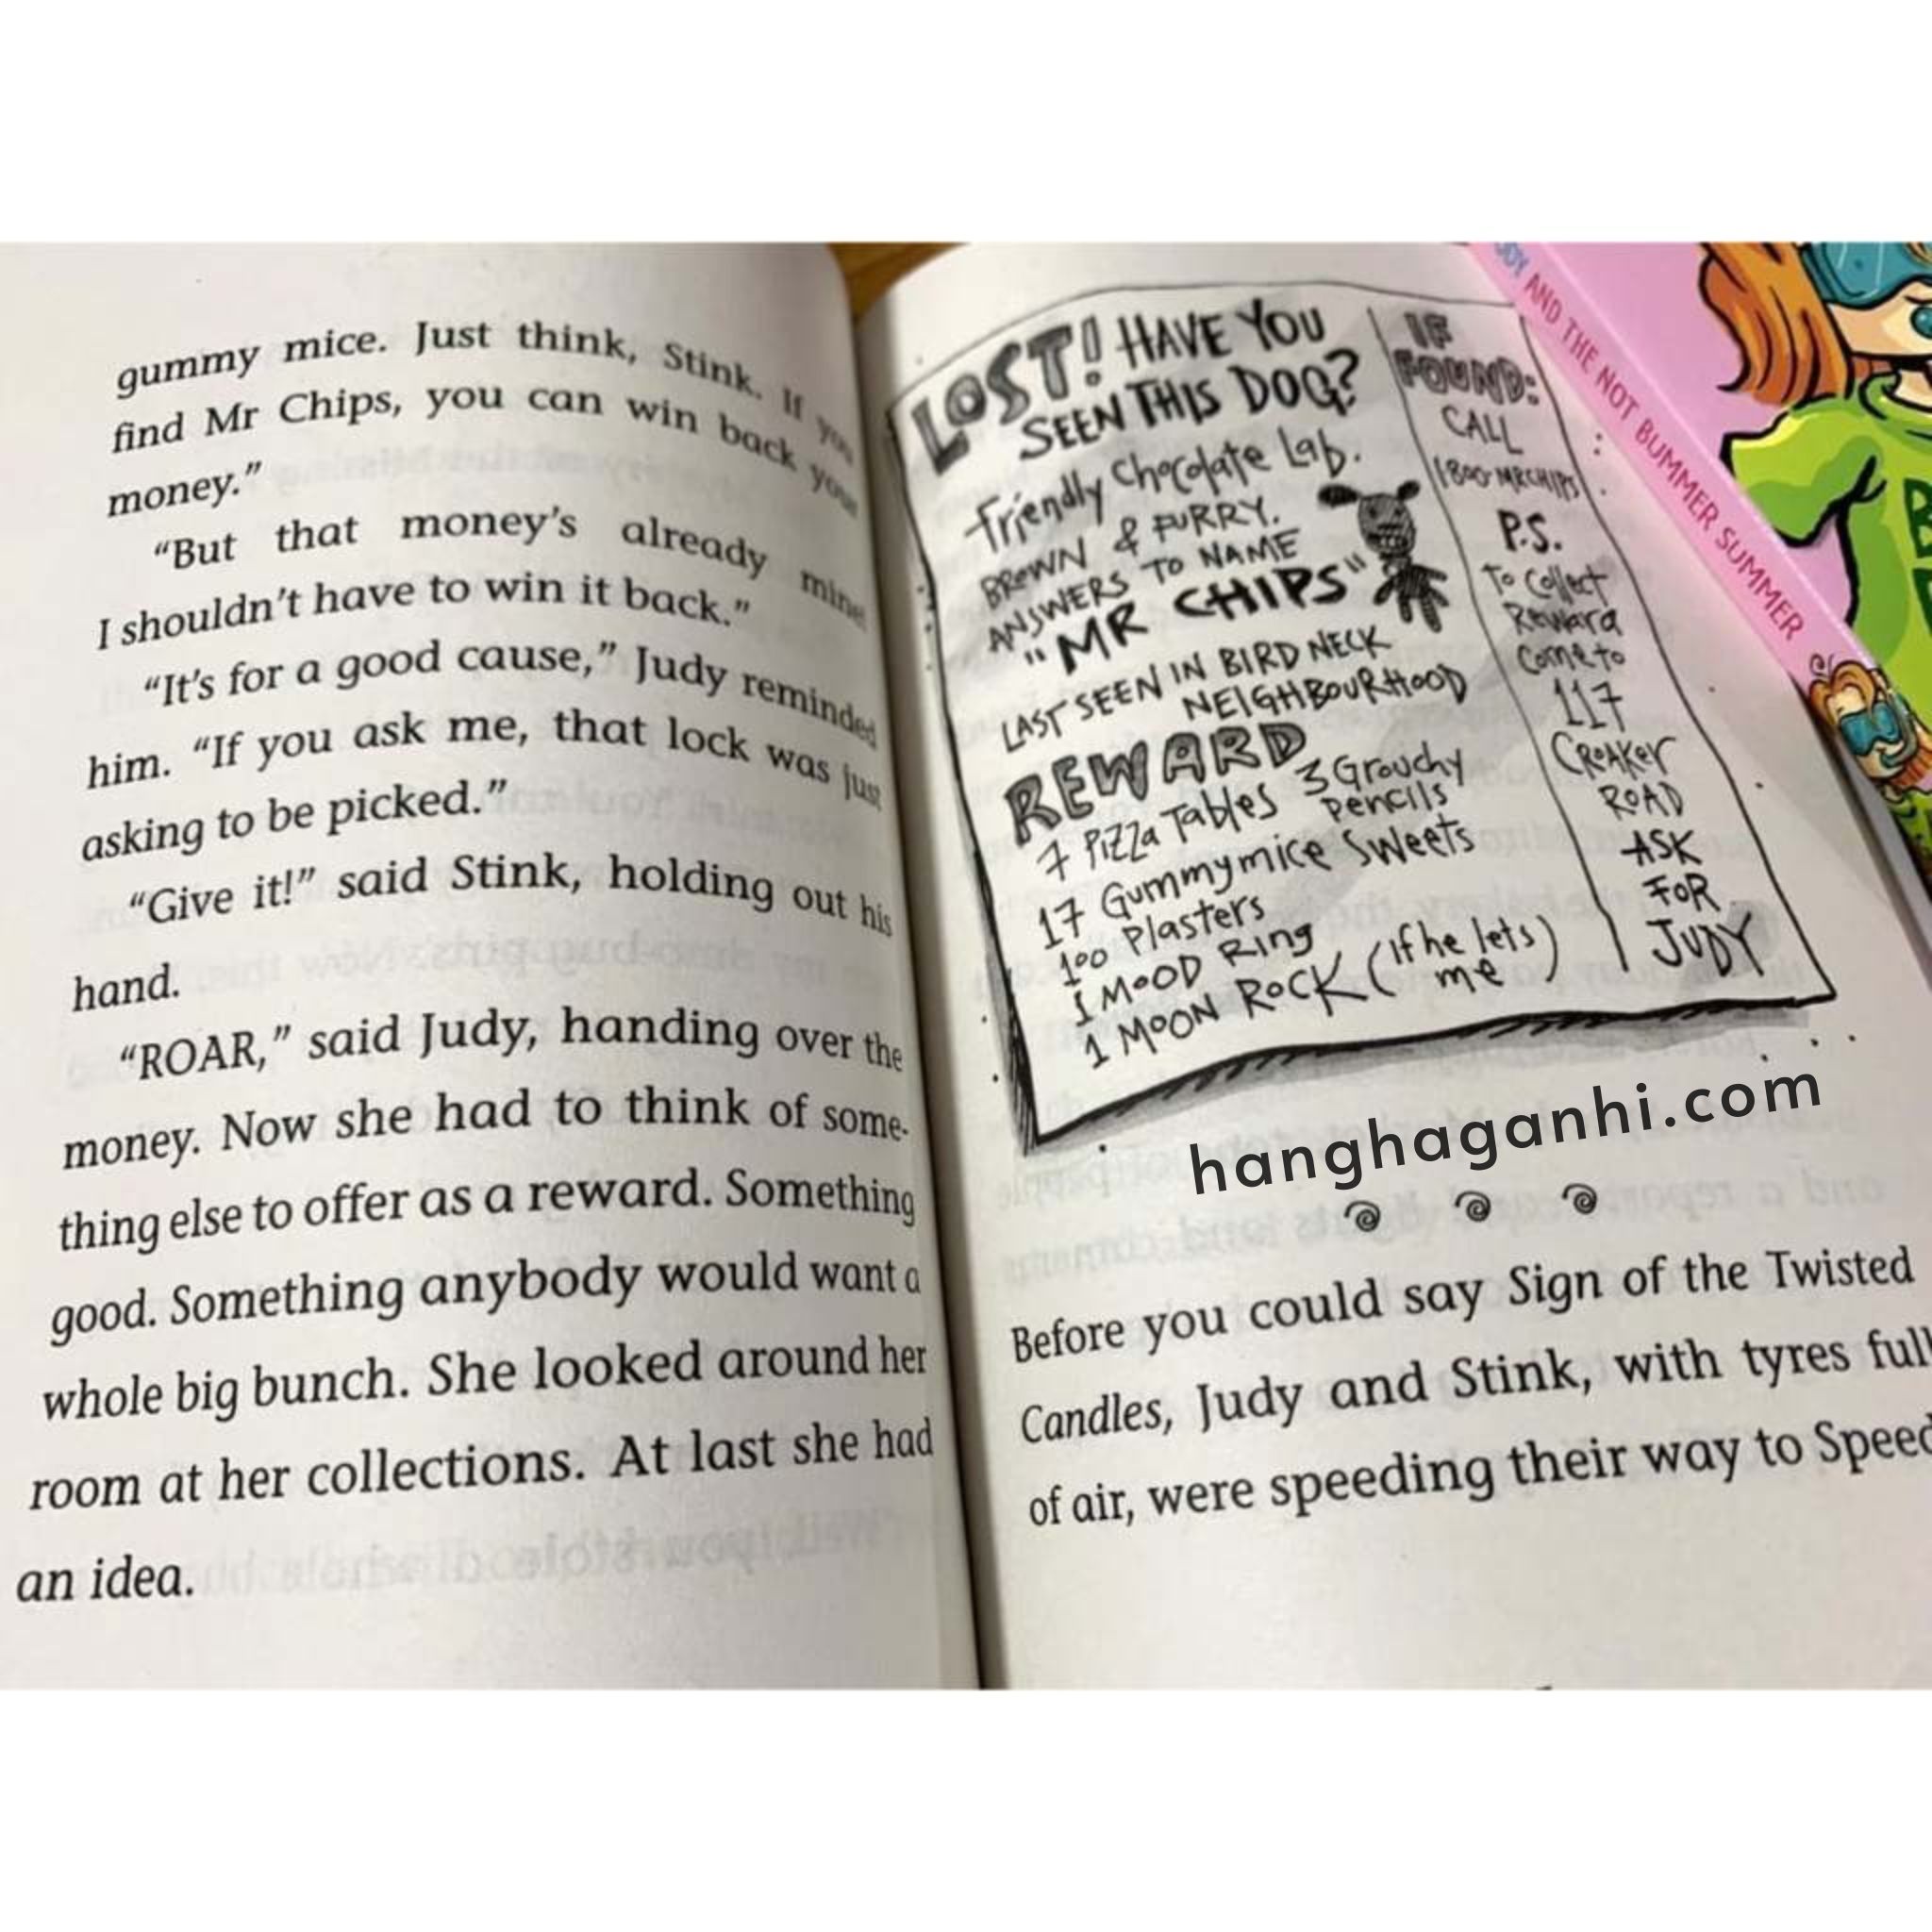 gummy mice. Just think, Stink. If you
find Mr Chips, you can win back your
money.”
“But that money’s already mine
I shouldn’t have to win it back.”
“It’s for a good cause,” Judy reminded
him. “If you ask me, that lock was just
asking to be picked.”
“Give it!” said Stink, holding out his
hand.
“ROAR,” said Judy, handing over the
money. Now she had to think of some-
thing else to offer as a reward. Something
good. Something anybody would want a
whole big bunch. She looked around her
room at her collections. At last she had
an idea.
LOST! HAVE YOU
SEEN THIS DOG?
Friendly Chocolate Lab.
BROWN & FURRY.
ANSWERS TO NAME
"MR CHIPS"
LAST SEEN IN BIRD NECK
NEIGHBOURHOOD
REWARD
7 Pizza Tables 3 Grouchy
pencils
17 Gummymice Sweets
100 Plasters
1 MOOD Ring
1 MOON ROCK (If he lets
me)
IF
FOUND:
CALL
1800-MRCHIPS
P.S.
To Collect
Reward
Come to
117
CROAKER
ROAD
ASK
FOR
JUDY
hanghaganhi.com
Before you could say Sign of the Twisted
Candles, Judy and Stink, with tyres full
of air, were speeding their way to Speed
AND THE NOT BUMMER SUMMER